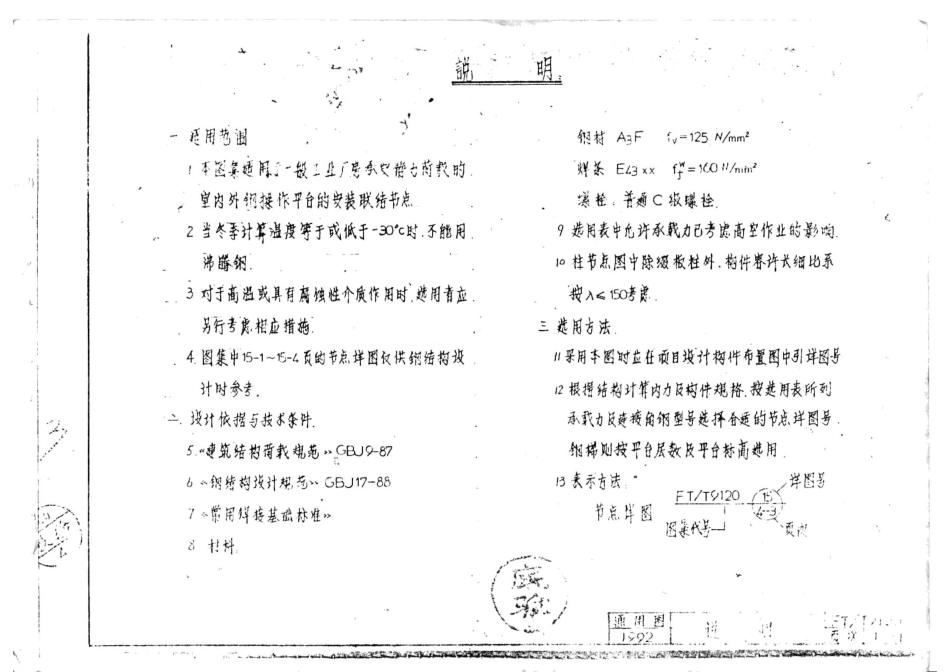 説 明
一 适用范围
1 本图集适用于一般工业厂房承受静力荷载的
室内外钢操作平台的安装联结节点
2 当冬季计算温度等于或低于-30°c时.不能用
沸腾钢.
3 对于高温或具有腐蚀性介质作用时.选用者应
另行考虑相应措施.
4. 图集中15-1~15-4页的节点详图仅供钢结构设
计时参考.
二. 设计依据与技术条件.
5.《建筑结构荷载规范》GBJ9-87
6 《钢结构设计规范》GBJ17-88
7 《常用焊接基础标准》
8 材料
钢材 A3F fv=125 N/mm²
焊条 E43xx =160 N/mm²
螺栓: 普通C级螺栓.
9 选用表中允许承载力已考虑高空作业的影响.
10 柱节点图中除缀板柱外.构件容许长细比系
按λ≤150考虑.
三 选用方法
11 采用本图时应在项目设计构件布置图中引详图号
12 根据结构计算内力及构件规格.按选用表所列
承载力及连接角钢型号选择合适的节点详图号.
钢梯则按平台层数及平台标高选用.
13 表示方法.
详图号
FT/T9120 15
节点详图
图集代号
页次
通用图 说 明
1992 页次